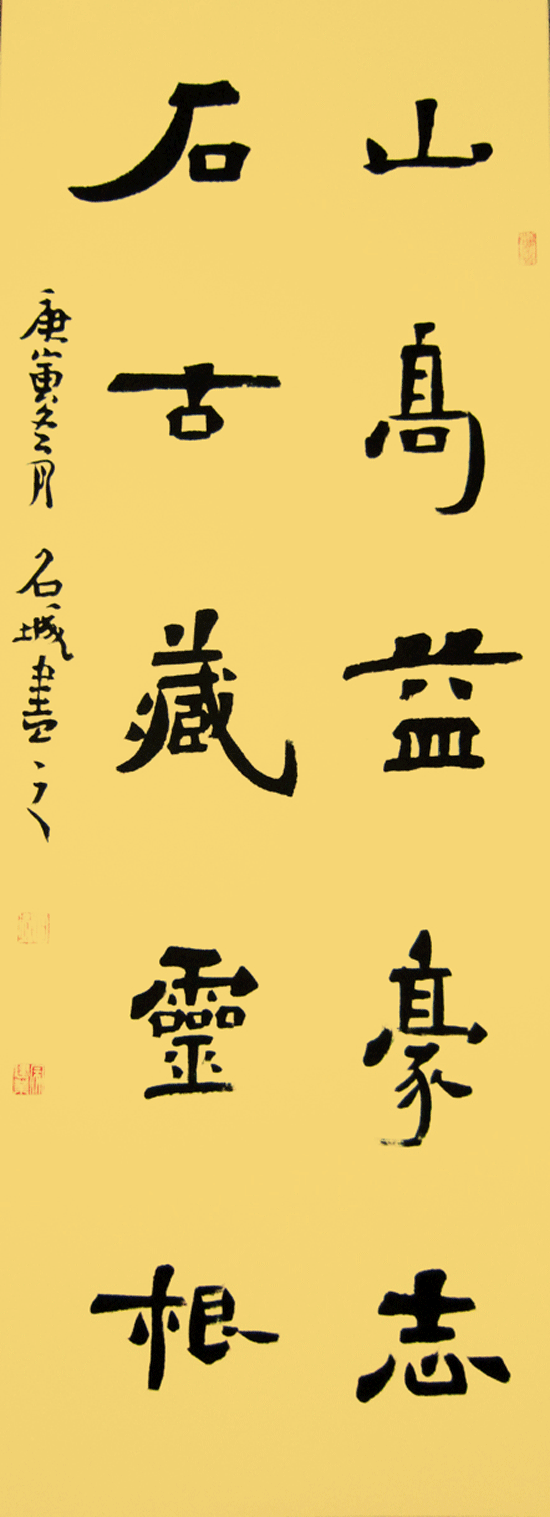 山高益豪志
石古藏靈根
庚寅冬月 石城書之